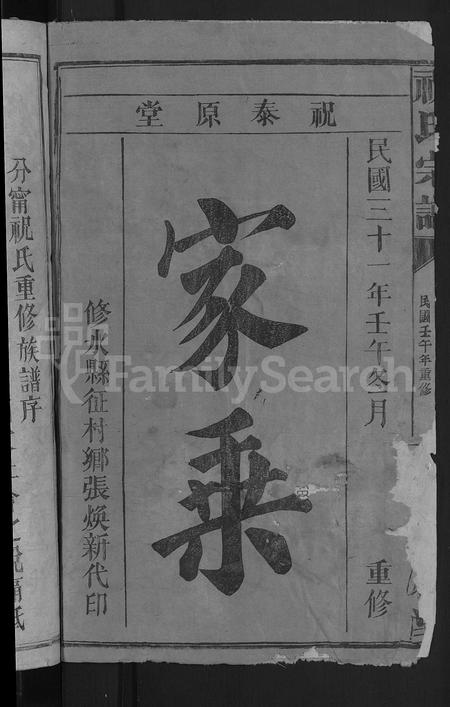 祝泰原堂
民國三十一年壬午冬月 重修
家乘
修水縣征村鄉張煥新代印
祝氏宗譜
民國壬午年重修
分甯祝氏重修族譜序
FamilySearch